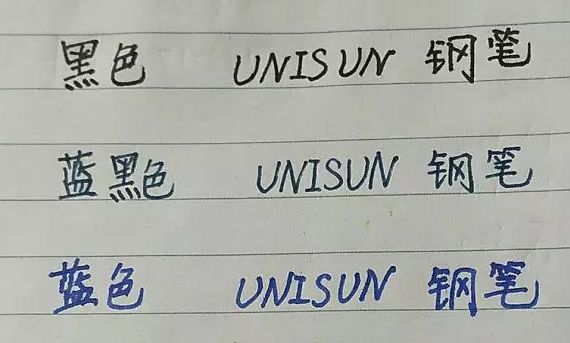 黑色 UNISUN 钢笔
蓝黑色 UNISUN 钢笔
蓝色 UNISUN 钢笔